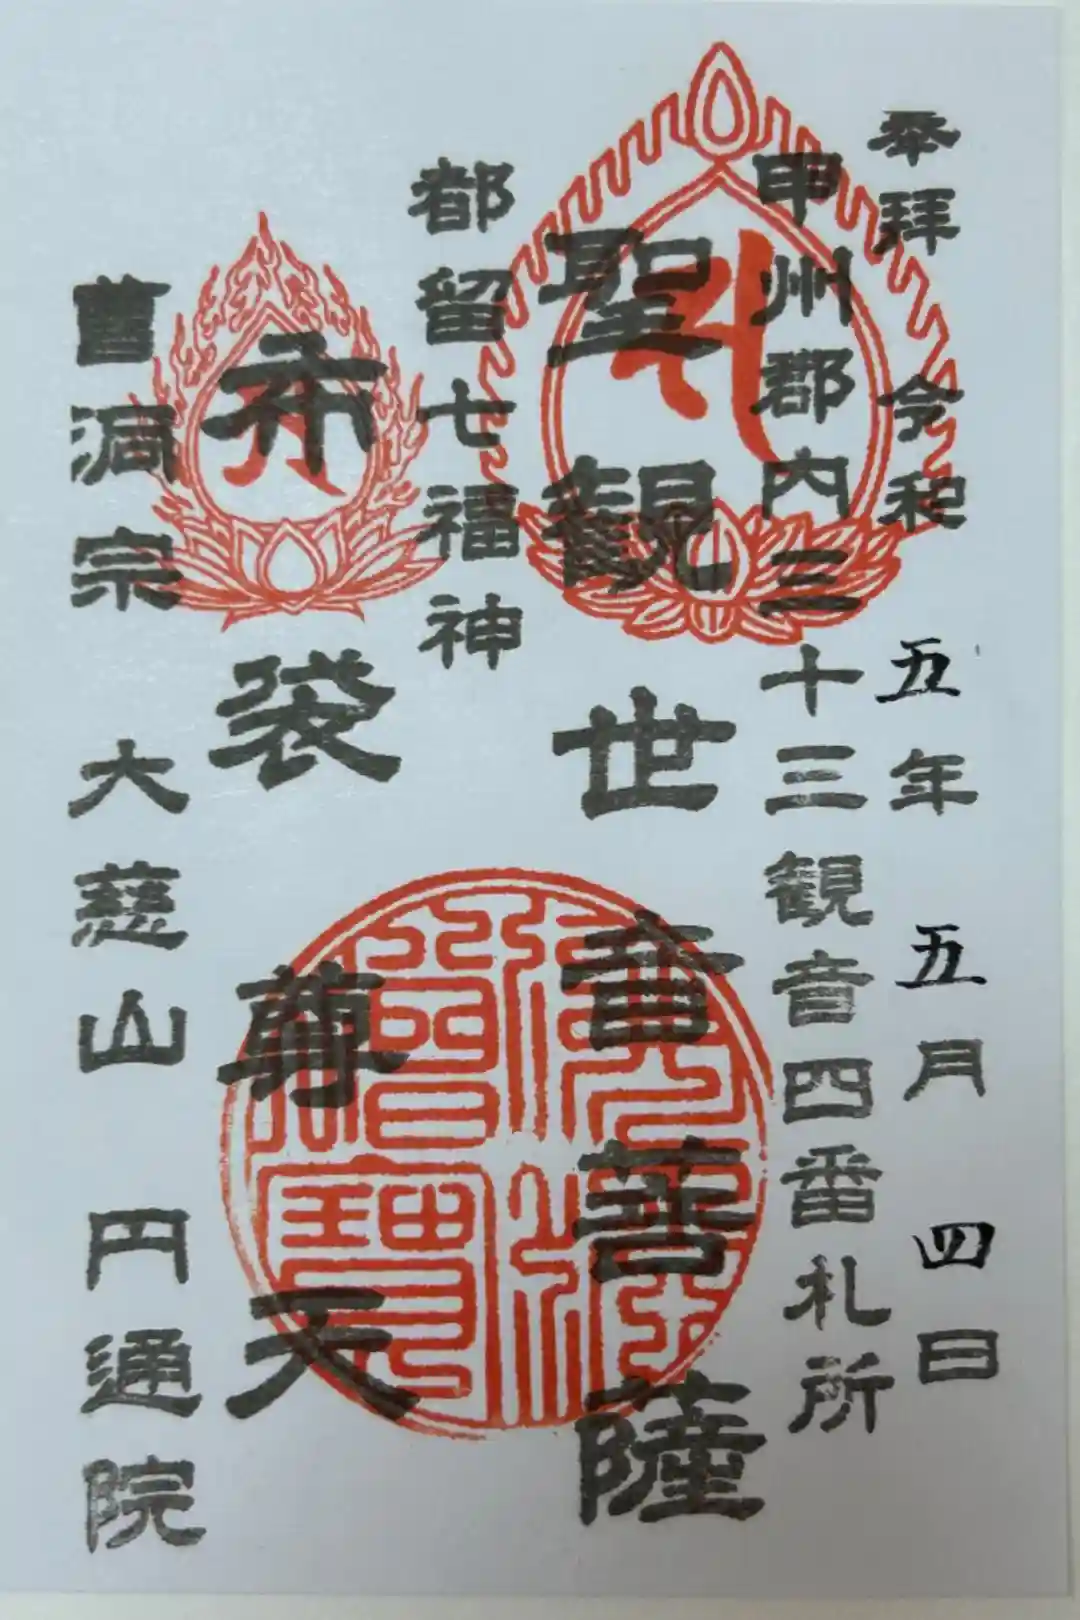 奉拝 令和五年五月四日
甲州郡内三十三観音四番札所
聖観世音菩薩
都留七福神
布袋尊天
曹洞宗 大慈山 円通院